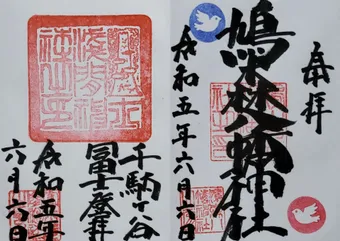 奉拝
鳩森八幡神社
令和五年六月六日
千駄ヶ谷
冨士登拝
令和五年
六月六日